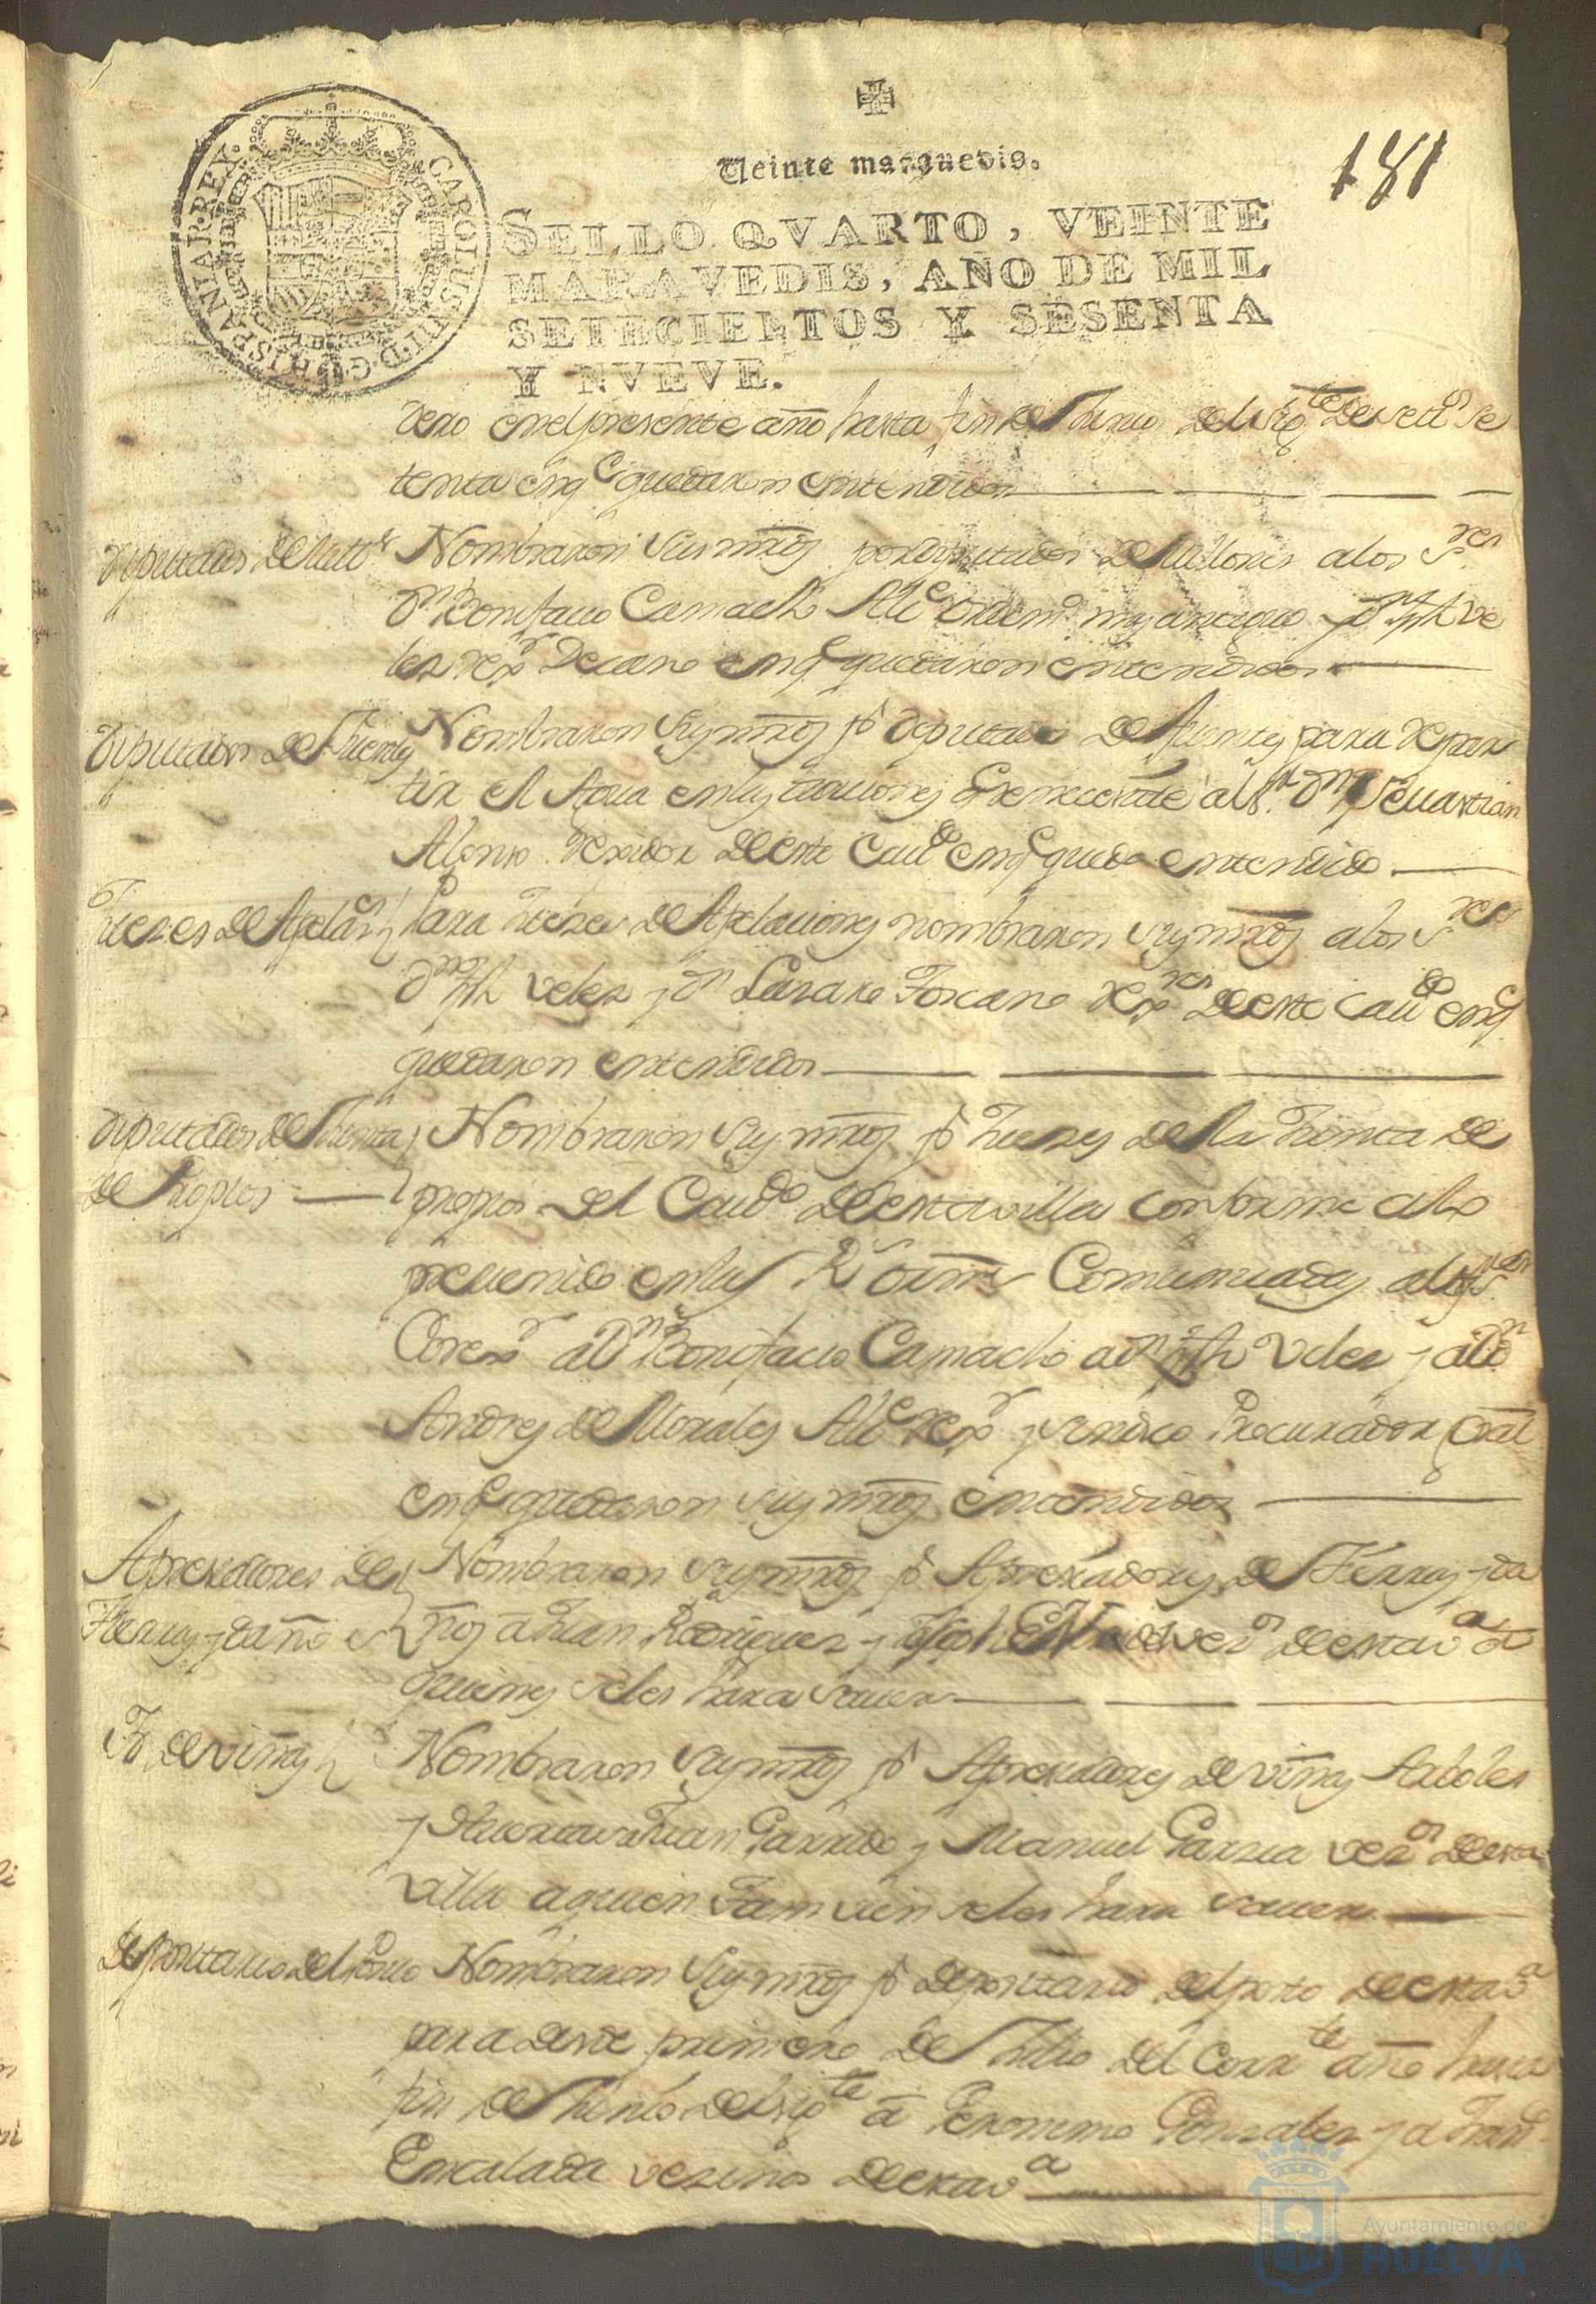 181
Veinte maravedis.
SELLO QVARTO, VEINTE
MARAVEDIS, AÑO DE MIL
SETECIENTOS Y SESENTA
Y NVEVE.
CAROLUS III D.G. HISPANIAR. REX.
dero en el presente año hasta fin de Junio del sigte de setos se
tenta en qe quedaron entendidos
Diputados de Mills Nombraron sus mrds por diputados de Millones a los Sres
Dn Bonifacio Camacho Alle Ordino mas antiguo y Dn Jph Ve
lez Rexr Decano en qe quedaron entendidos
Diputados de Fuentes Nombraron sus mrds pr diputado de fuentes para repar
tir el Agua en las ocaciones qe se necesite al Sr Dn Sevastian
Alonso Rexidor de este Cavdo en qe quedo entendido
Juezes de Apelasnes Para Juezes de Apelaciones nombraron sus mrds a los Sres
Dn Jph Velez y Dn Lazaro Toscano Rexres de este Cavdo en qe
quedaron entendidos
Diputados de Junta Nombraron sus mrds pr Juezes de la Junta de
de Propios propios del Cavdo de esta villa conforme a lo
prevenido en las Rs Orns Comunicadas a los Sres
Correxr a Dn Bonifacio Camacho a Dn Jph Velez y a Dn
Andres de Morales Alle Rexr y Sindico Procurador Gral
en qe quedaron sus mrds entendidos
Apreciadores de Nombraron sus mrds pr Apreciadores de Tierras y da
Tierras y daños ños a Juan Rodriguez y Joseph vezos de esta va a
quienes se les hara saver
Yd de viñas Nombraron sus mrds pr Apreciadores de viñas Arboles
y Huertas a Juan Garrido y Manuel Garzia vezos de esta
villa a quien tamvien se les hara saver
Depositario del Posito Nombraron sus mrds pr depositario del posito de esta va
para desde primero de Julio del Corrte año hasta
fin de Junio del sigte a Geronimo Gonzales y a Juan
Escalada vezinos de esta va
Ayuntamiento de
HUELVA